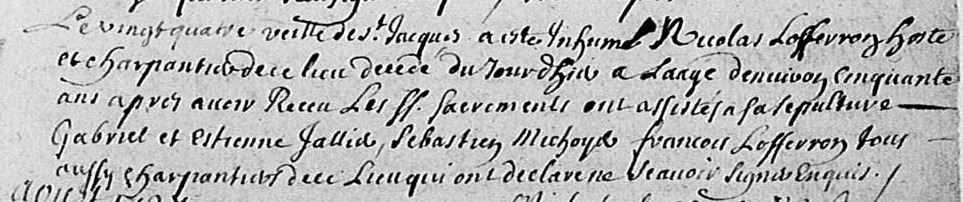 Le vingt quatre veille de st. Jacques a este Inhumé Nicolas Lofferron hoste
et charpantier de ce lieu decedé du Jourdhie a Laage denviron Cinquante
ans apres avoir Receu Les ss. sacrements ont assistés a sa sepulture
Gabriel et Estienne Jallie, Sebastien Michoye francois Lofferron tous
aussy charpantiers de ce Lieu qui ont declaré ne scavoir signer Enquis.
aoust